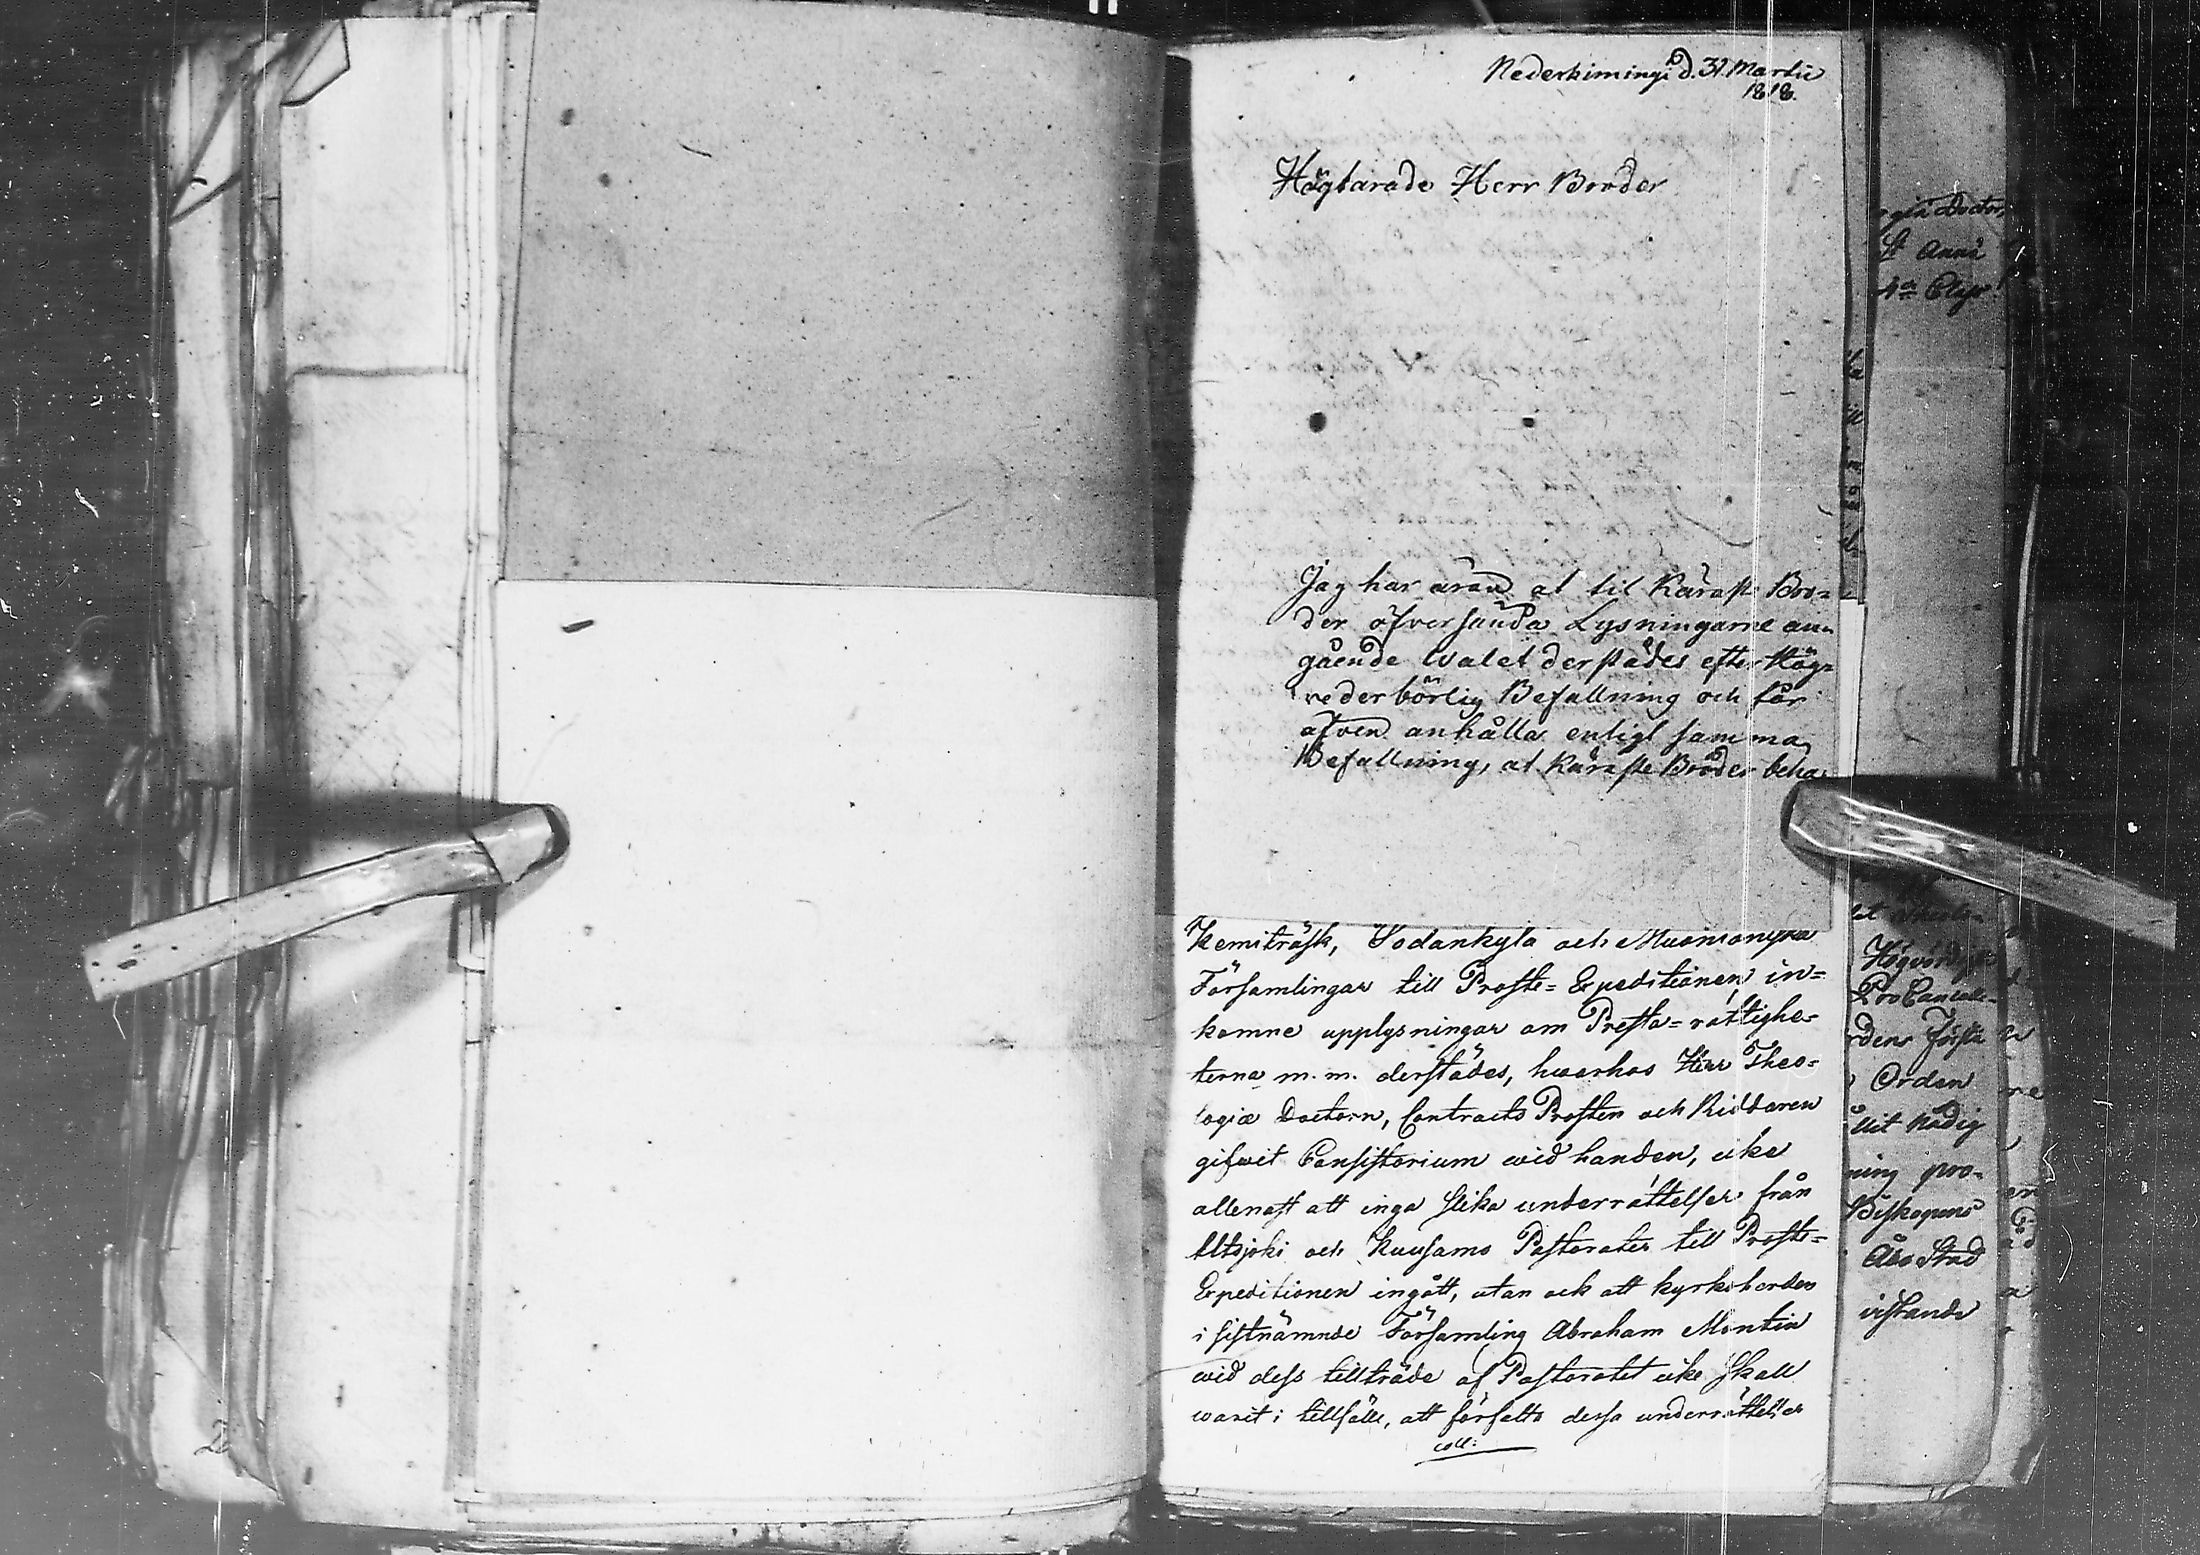 Nederkimingi d. 31. Martii
1818.
Högtärade Herr Broder
Jag har äran at til Käraste Bro=
der öfversända Lysningarne an=
gående Valet derstädes efter Hög=
vederbörlig Befallning och får
äfven anhålla enligt samma
Befallning, at Käraste Broder beha=
Kemiträsk, Sodankylä och Muonionjska
Församlingar till Proste=Expeditionen in=
komne upplysningar om Presta=rättighe=
terna m.m. derstädes, hwarhos Herr Theo=
logiæ Doctorn, Contracts Prosten och Riddaren
gifwit Consistorium wid handen, icke
allenast att inga slika underrättelser från
Utsjoki och Kuusamo Pastorater till Proste=
Expeditionen ingått, utan ock att kyrkoherden
i sistnämnde Församling Abraham Montin
wid dess tillträde af Pastoratet icke skall
warit i tillfälle, att författa dessa underrättelser
coll:
ogiæ Doctor,
St Annæ
Högvördig
ProCancelle=
rdens Första
Orden
llit Nådig
ning pro=
Biskopens
Åbo Stad